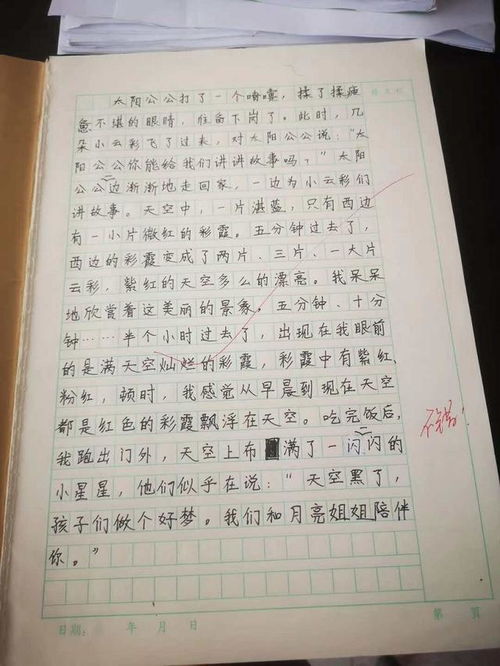 太阳公公打了一个喷嚏，揉了揉疲
惫不堪的眼睛，准备下岗了。此时，几
朵小云彩飞了过来，对太阳公公说："太
阳公公你能给我们讲讲故事吗？"太阳
公公边渐渐地走回家，一边为小云彩们
讲故事。天空中，一片湛蓝，只有西边
有一小片微红的彩霞。五分钟过去了，
西边的彩霞变成了两片、三片、一大片
云彩，紫红的天空多么的漂亮。我呆呆
地欣赏着这美丽的景象。五分钟、十分
钟……半个小时过去了，出现在我眼前
的是满天空灿烂的彩霞，彩霞中有紫红、
粉红，顿时，我感觉从早晨到现在天空
都是红色的彩霞飘浮在天空。吃完饭后，
我跑出门外，天空上布满了一闪闪的
小星星，他们似乎在说："天空黑了，
孩子们做个好梦。我们和月亮姐姐陪伴
你。"
不错！
日期： 年 月 日
第 页